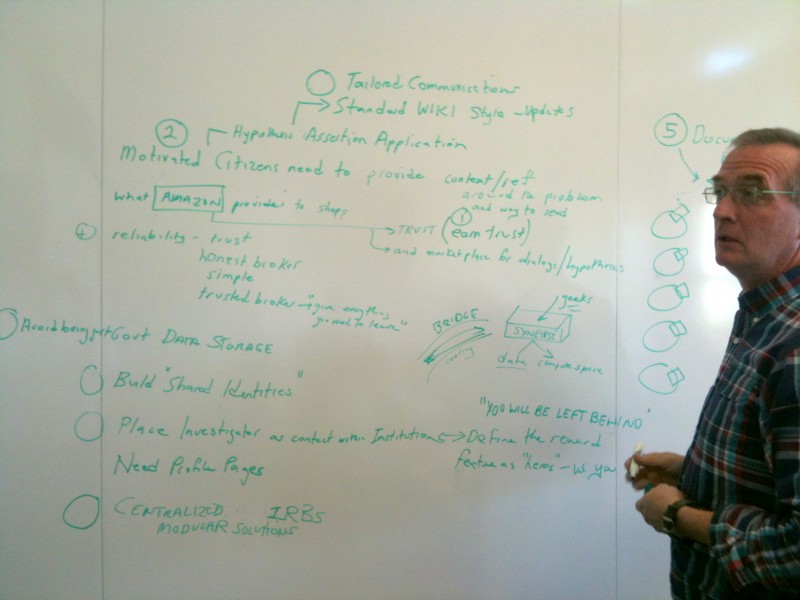 Tailored Communications
Standard WIKI Style - Updates
2
Hypothesis Assertion Application
Motivated Citizens need to provide content/ref
around the problem
and way to send
What AMAZON provides to shops
TRUST (earn trust)
1
and marketplace for dialogs/hypotheses
+ reliability - trust
honest broker
simple
trusted broker → "give anything,
to leave"
Avoid being just Govt DATA STORAGE
BRIDGE
geeks
SYNAPSE
data compute space
Build "Shared Identities"
"YOU WILL BE LEFT BEHIND"
Place Investigator as contact within Institutions → Define the reward
Need Profile Pages
feature as "heros" -
CENTRALIZED IRBs
MODULAR SOLUTIONS
5 Docu